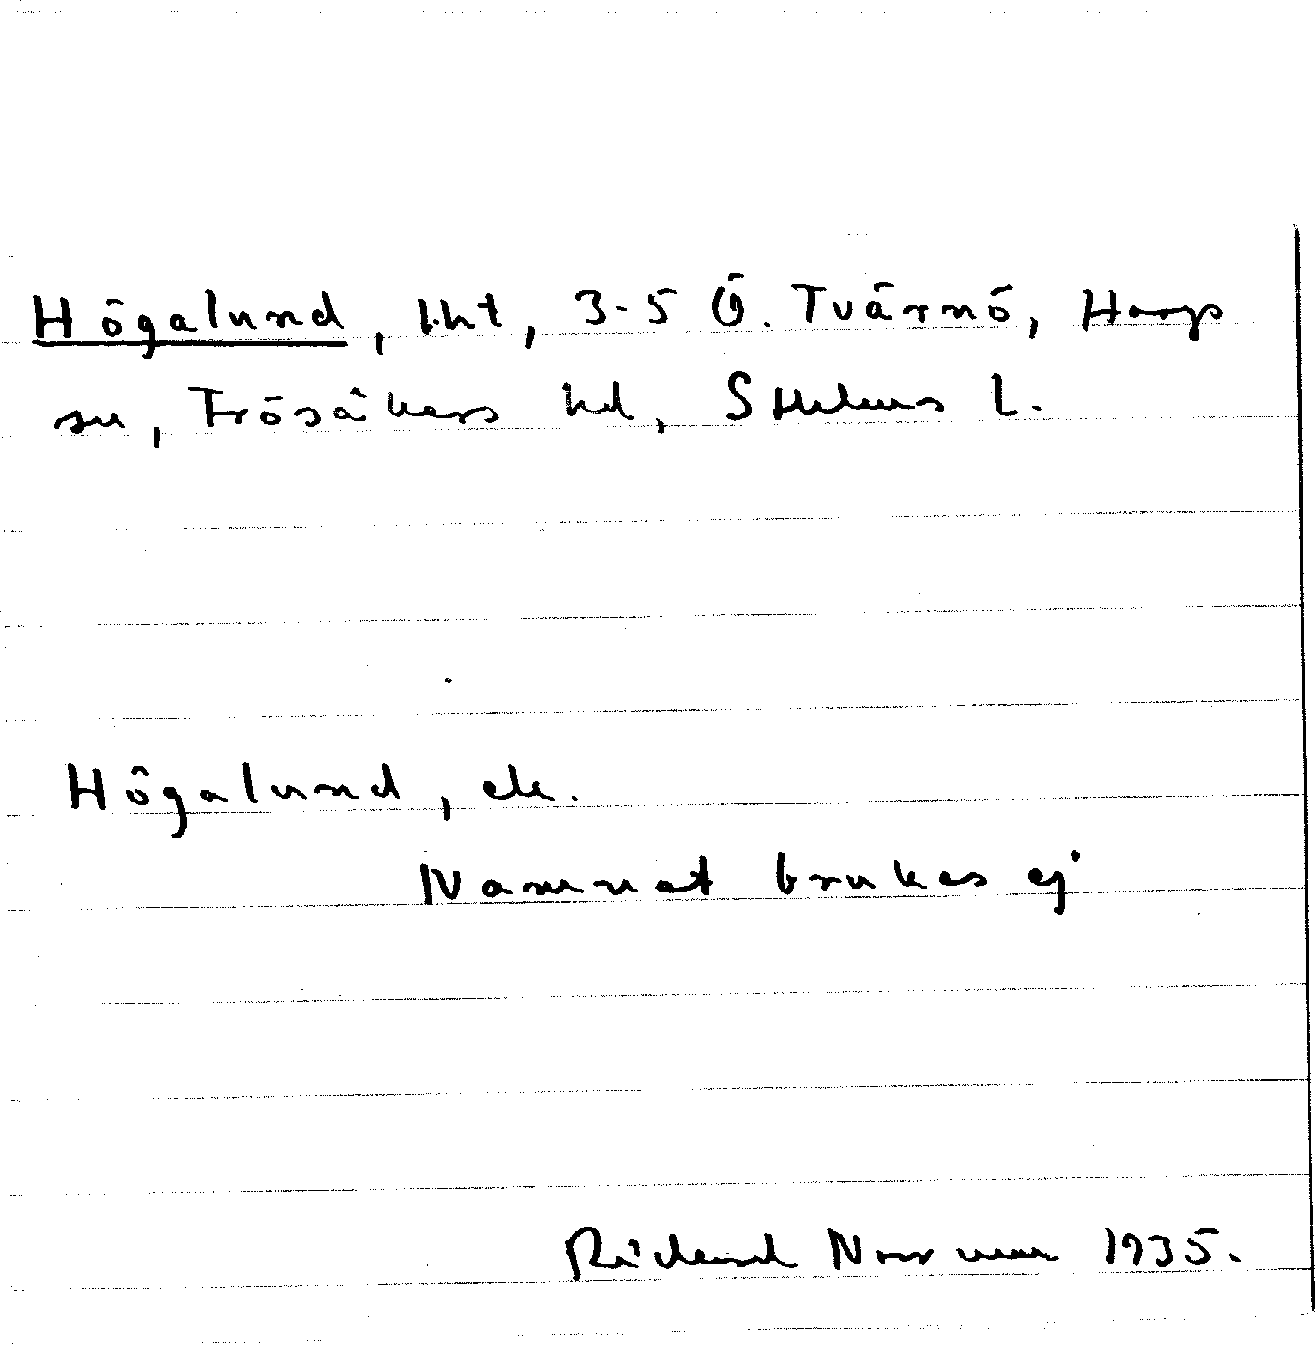 Högalund, lht, 3-5 Ö. Tvärnö, Hargs
sn, Frösåkers hd, Sthlms l.
Högalund, ek.
Namnet brukas ej
Rickard Norrman 1935.